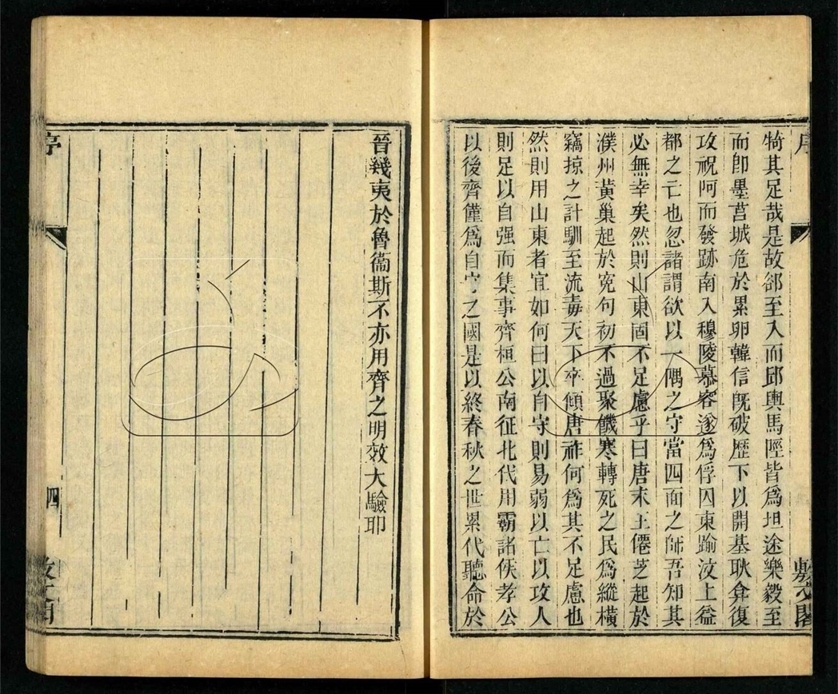 序
敷文閣
犄其足哉是故郤至入而邱輿馬陘皆爲坦途樂毅至
而卽墨莒城危於累卵韓信旣破歷下以開基耿弇復
攻祝阿而發跡南入穆陵慕容遂爲俘囚東踰汶上益
都之亡也忽諸謂欲以一隅之守當四面之師吾知其
必無幸矣然則山東固不足慮乎曰唐末王僊芝起於
濮州黃巢起於宛句初不過聚饑寒轉死之民爲縱橫
竊掠之計馴至流毒天下卒傾唐祚何爲其不足慮也
然則用山東者宜如何曰以自守則易弱以亡以攻人
則足以自强而集事齊桓公南征北代用霸諸侯孝公
以後齊僅爲自守之國是以終春秋之世累代聽命於
晉幾夷於魯衞斯不亦用齊之明效大驗耶
序
四
敷文閣